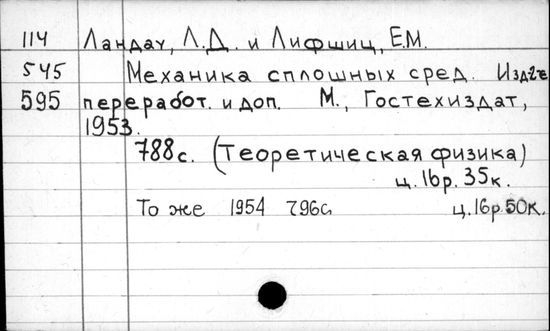 114 Ландау, Л.Д. и Лифшиц, Е.М.
545 Механика сплошных сред. Изд 2е
595 переработ. и доп. М., Гостехиздат,
1953.
788с. (Теоретическая физика)
ц. 16р. 35к.
То же 1954 796с ц. 16р. 50к.